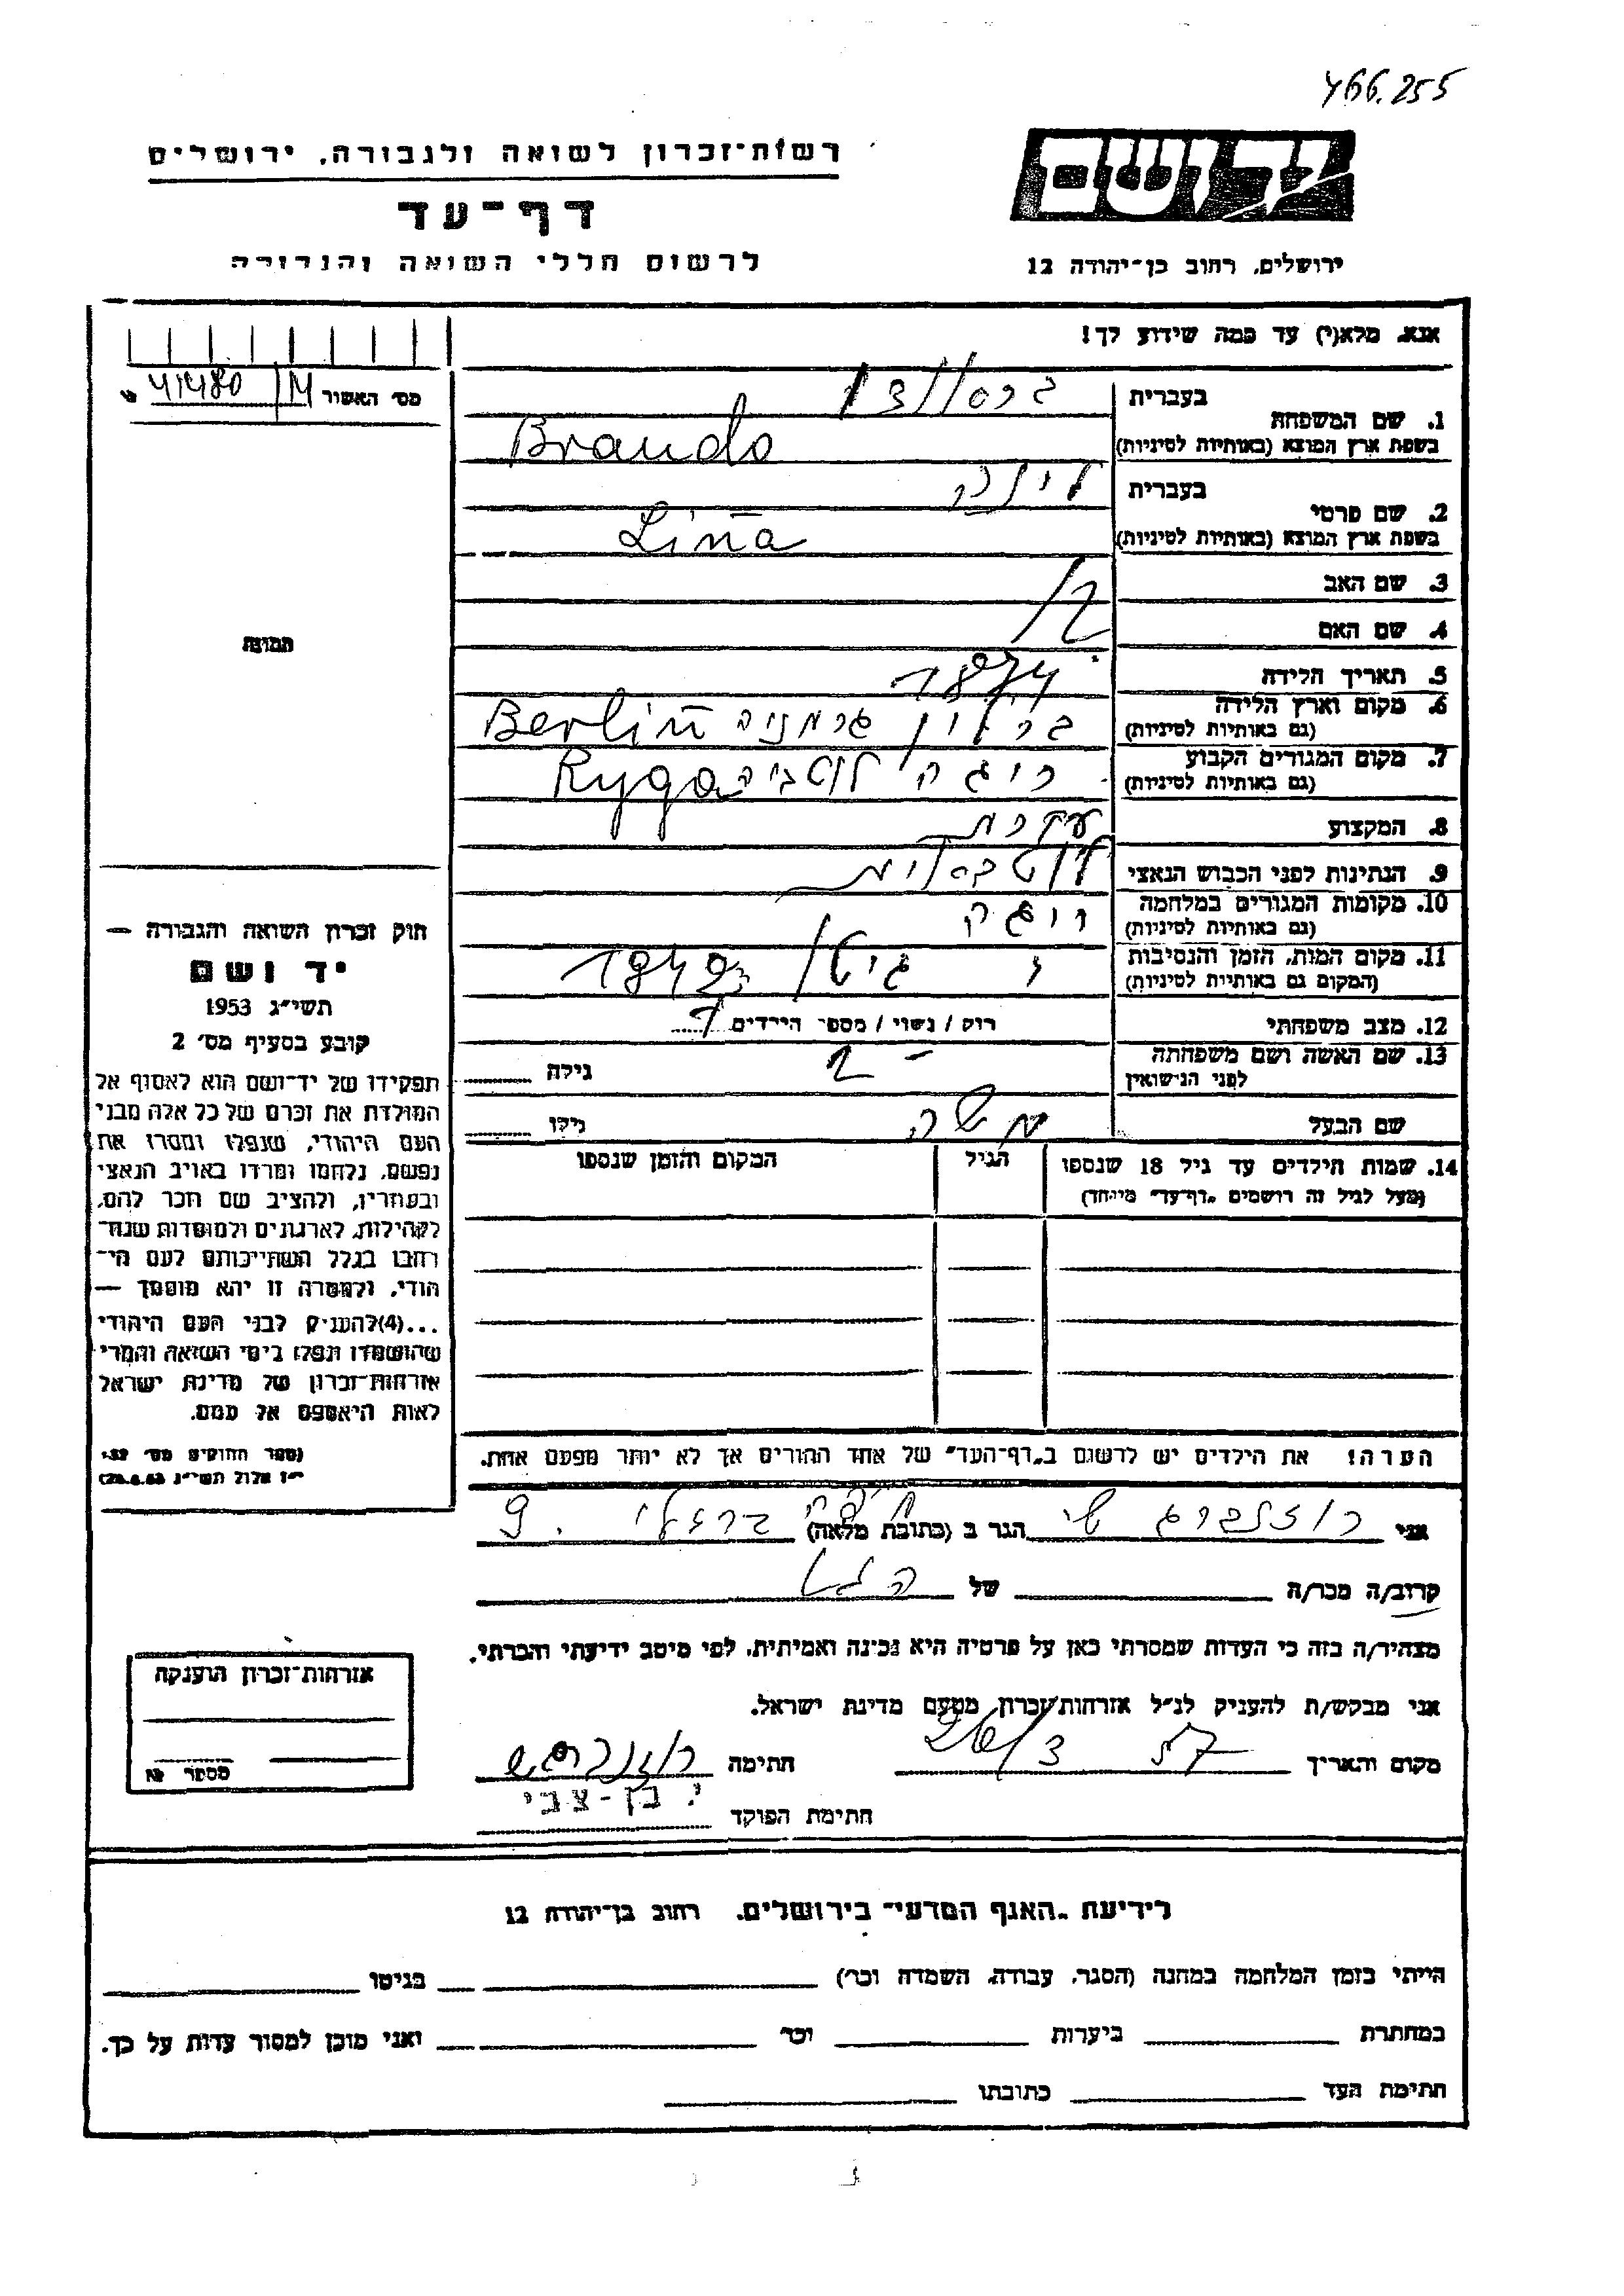 466.255
רשות־זכרון לשואה ולגבורה, ירושלים
יד ושם
דף־עד
לרשום חללי השואה והגבורה
ירושלים, רחוב בן־יהודה 12
אנא, מלא(י) עד כמה שידוע לך!
מס׳ האשור
1. שם המשפחה
בעברית
בשפת ארץ המוצא (באותיות לטיניות) Brando
2. שם פרטי
בעברית לינה
בשפת ארץ המוצא (באותיות לטיניות) Lina
3. שם האב
4. שם האם
5. תאריך הלידה 1874
6. מקום וארץ הלידה ברלין גרמניה Berlin
(גם באותיות לטיניות)
7. מקום המגורים הקבוע ריגה לטביה Ryga
(גם באותיות לטיניות)
8. המקצוע עקרת
9. הנתינות לפני הכבוש הנאצי
10. מקומות המגורים במלחמה ריגה
(גם באותיות לטיניות)
11. מקום המות, הזמן והנסיבות גיטו
(המקום גם באותיות לטיניות)
12. מצב משפחתי רווק / נשוי / מספר הילדים
13. שם האשה ושם משפחתה גילה
לפני הנישואין
שם הבעל משה גילו
14. שמות הילדים עד גיל 18 שנספו הגיל המקום והזמן שנספו
(מעל לגיל זה רושמים „דף־עד״ מיוחד)
הערה! את הילדים יש לרשום ב„דף־העד״ של אחד ההורים אך לא יותר מפעם אחת.
תמונה
חוק זכרון השואה והגבורה —
יד ושם
תשי״ג 1953
קובע בסעיף מס׳ 2
תפקידו של יד־ושם הוא לאסוף אל
המולדת את זכרם של כל אלה מבני
העם היהודי, שנפלו ומסרו את
נפשם, נלחמו ומרדו באויב הנאצי
ובעוזריו, ולהציב שם וזכר להם,
לקהילות, לארגונים ולמוסדות שנח־
רבו בגלל השתייכותם לעם הי־
הודי, ולמטרה זו יהא מוסמך —
...(4)להעניק לבני העם היהודי
שהושמדו ונפלו בימי השואה והמרי
אזרחות־זכרון של מדינת ישראל
לאות היאספם אל עמם.
(ספר החוקים מס׳ 132,
י״ז אלול תשי״ג 28.8.53)
אני רוזנברג הגר ב (כתובת מלאה) ברזלי 9
קרוב/ה מכר/ה של
מצהיר/ה בזה כי העדות שמסרתי כאן על פרטיה היא נכונה ואמיתית, לפי מיטב ידיעתי והכרתי.
אני מבקש/ת להעניק לנ״ל אזרחות־זכרון מטעם מדינת ישראל.
מקום ותאריך חתימה
חתימת הפוקד י. בן-צבי
אזרחות־זכרון הוענקה
מספר №
לידיעת „האגף המדעי״ בירושלים, רחוב בן־יהודה 12
הייתי בזמן המלחמה במחנה (הסגר, עבודה, השמדה וכו׳) בגיטו
במחתרת ביערות וכו׳ ואני מוכן למסור עדות על כך.
חתימת העד כתובתו